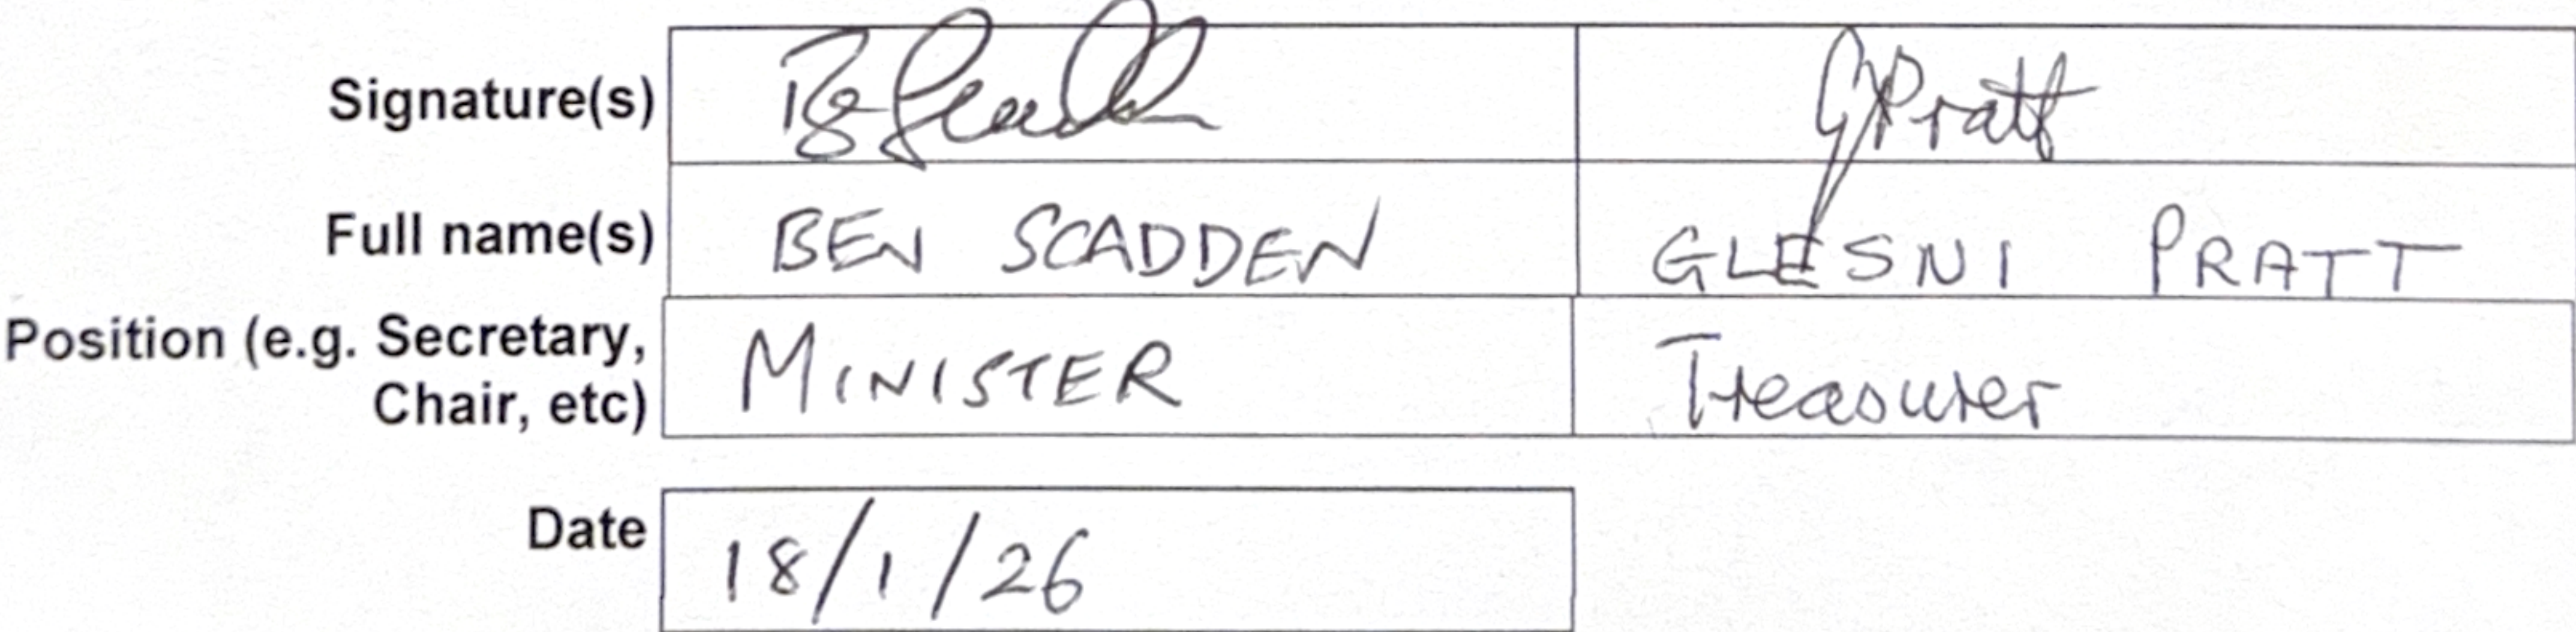 Signature(s) GPratt
Full name(s) BEN SCADDEN GLESNI PRATT
Position (e.g. Secretary,
Chair, etc) MINISTER Treasurer
Date 18/1/26